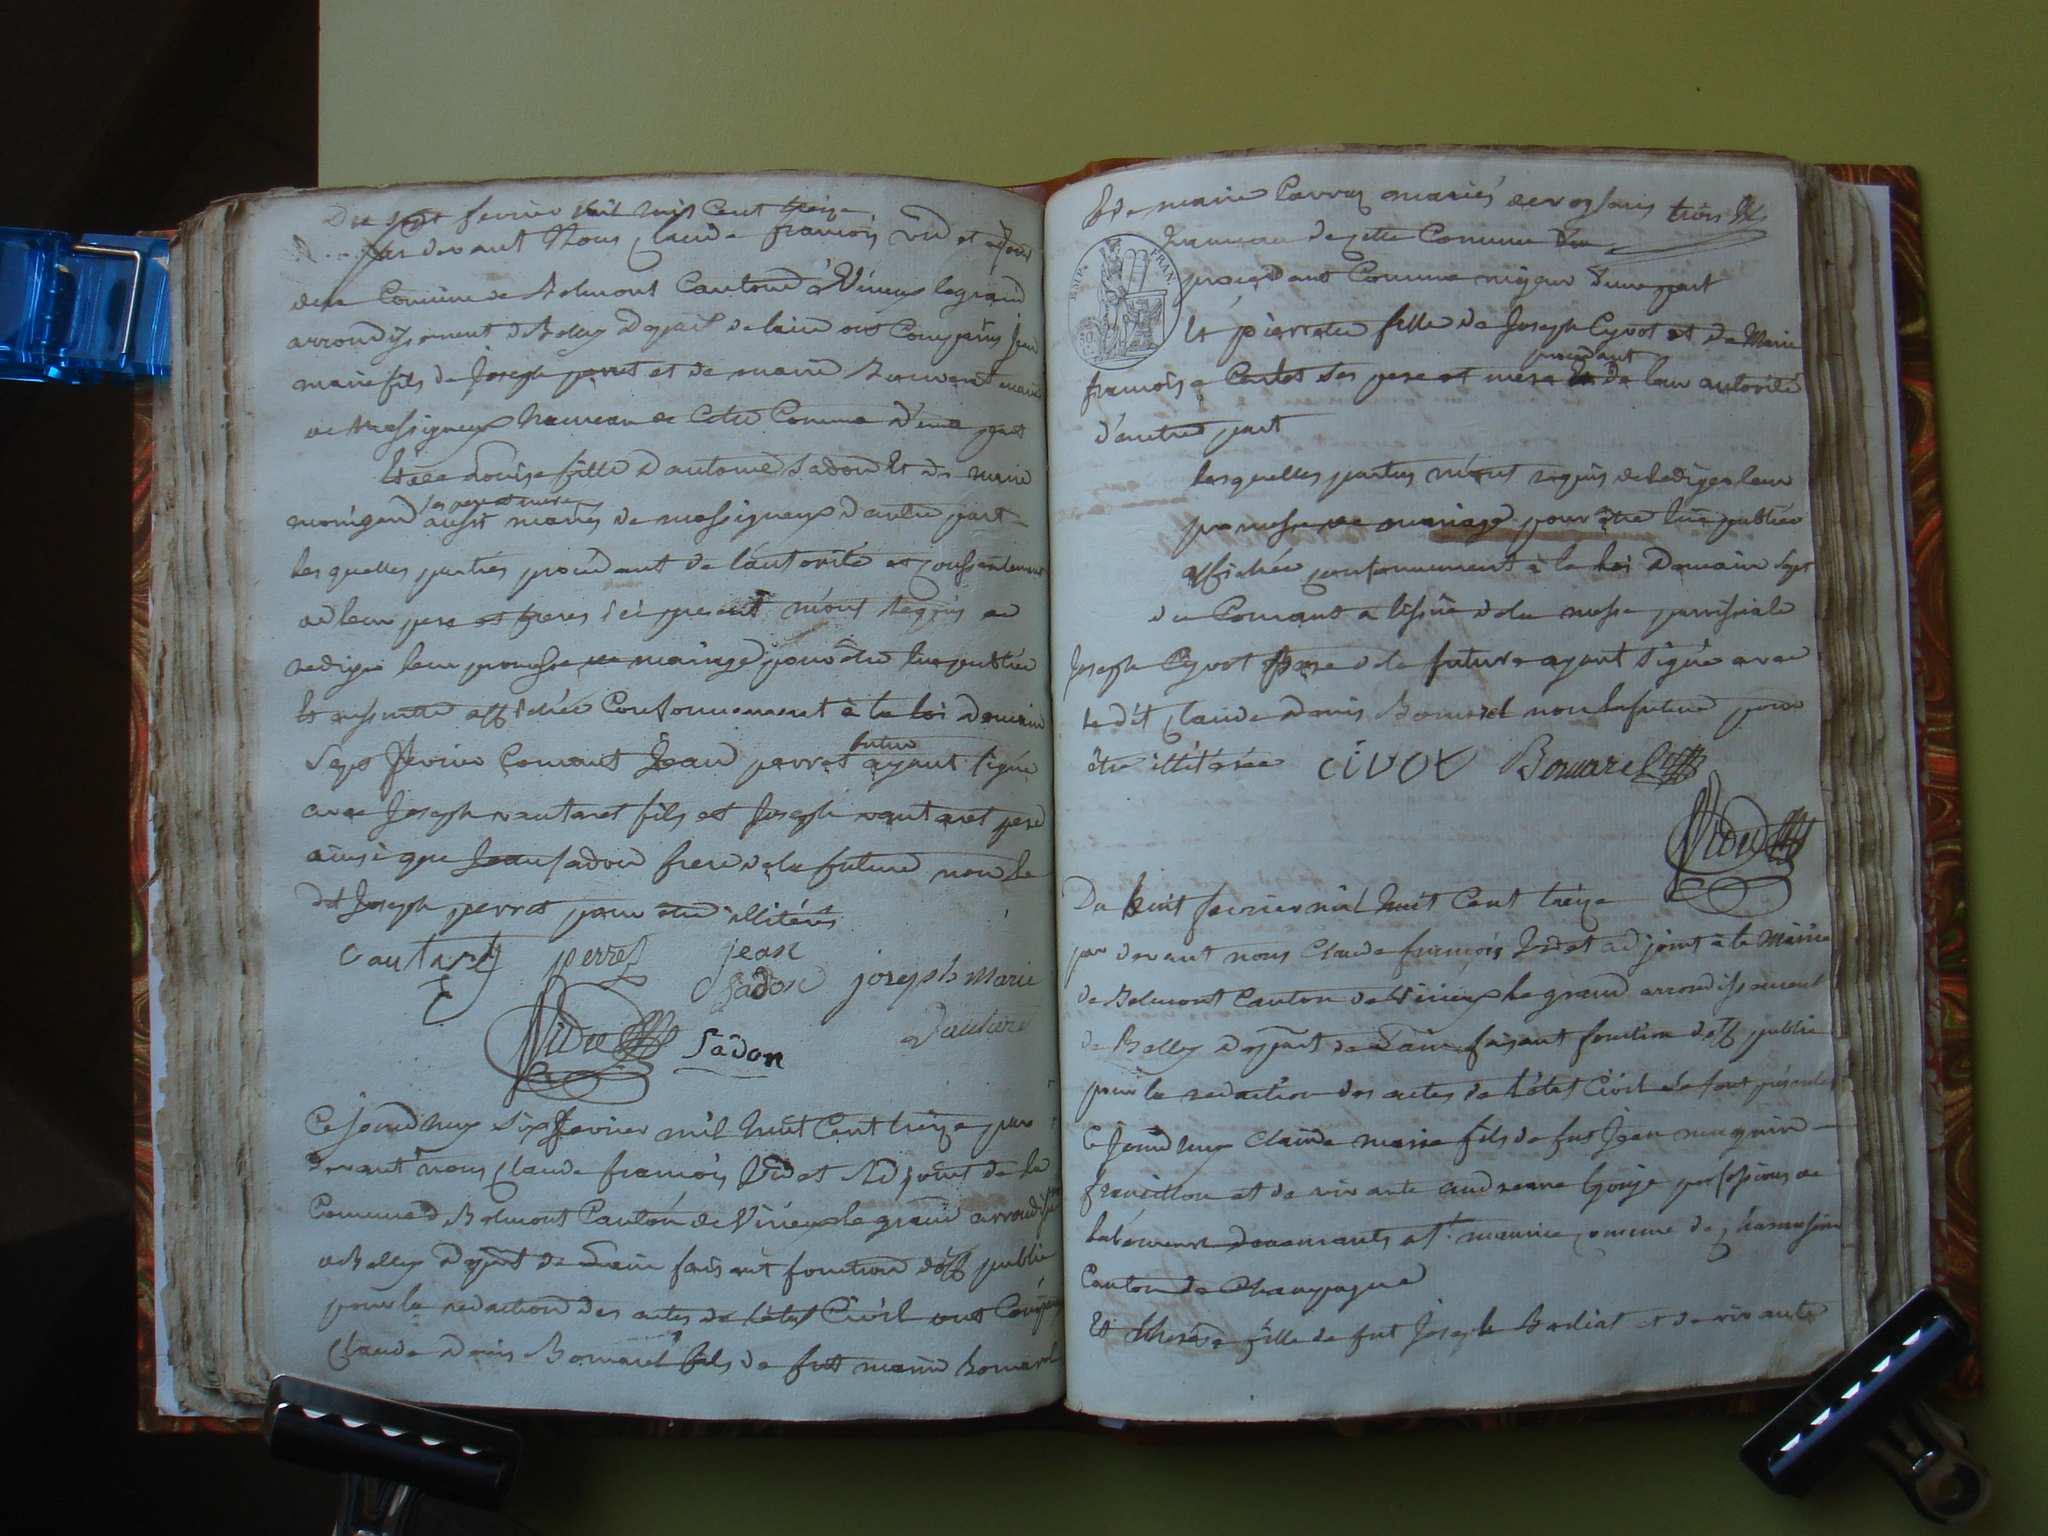 Du sept fevrier mil huit Cent treize
par devant Nous Claude francois videt adjoint
de la Commune de Belmont Canton de Virieux le grand
arrondissement de Belley Depart de lain ont Comparus jean
marie fils de Joseph perret et de marie
de Massigneux hameau de Cette Commune D'une part
Et Louise fille D'antoine Sadon Et de marie
ses pere et mere
aussi mariés de massigneux d'autre part
les quelles parties procédant de l'autorité et consentement
de leur pere et freres ici present m'ont Requis de
rediger leur promesse de mariage pour être lue publiée
Et ensuitte affichée Conformement à la loi Demain
futur
Sept fevrier Courant Jean perret ayant signé
avec Joseph vautaret fils et Joseph vautaret pere
ainsi que Jean Sadon frere de la future non le
dit Joseph perret pour être illitéré
vautaret perret jean
Sadon joseph marie
Vautaret
Videt Sadon
Ce jourd'huy Six fevrier mil huit Cent treize par
devant nous Claude francois Videt Adjoint de la
Commune de Belmont Canton de Virieux le grand arrondissement
de Belley Depart de Lain faisant fonction d'off public
pour la redaction des actes de l'état Civil ont Comparu
Claude Denis Bomarel fils de fut marin Bomarel
Et de marie Carraz mariés
hameau de cette Commune
EMP. FRAN.
procedant Comme majeur d'une part
Et pierrette fille de Joseph Cyvot et de Marie
procedant
francoise Ses pere et mere de leur autorité
d'autre part
les quelles parties m'ont requis de Rediger leur
promesse de mariage pour être lue publiée
affichée conformement à la loi Demain Sept
du Courant a l'issue de la messe parroissiale
Joseph Cyvot pere de la future ayant signé avec
le dit Claude Denis Bomarel non la future pour
être illitérée civot Bomarel
Videt
Du huit fevrier mil huit Cent treize
par devant nous Claude françois Videt adjoint à la Mairie
de Belmont Canton de Virieux le grand arrondissement
de Belley Depart de Lain faisant fonction d'off public
pour la redaction des actes de l'état Civil se sont présentés
Ce jourd'huy Claude marie fils de fut Jean
et de vivante andreanne professions de
laboureur demeurants a St. maurice Commune de
Canton de Champagne
Et therese fille de fut Joseph Berliat et de vivante